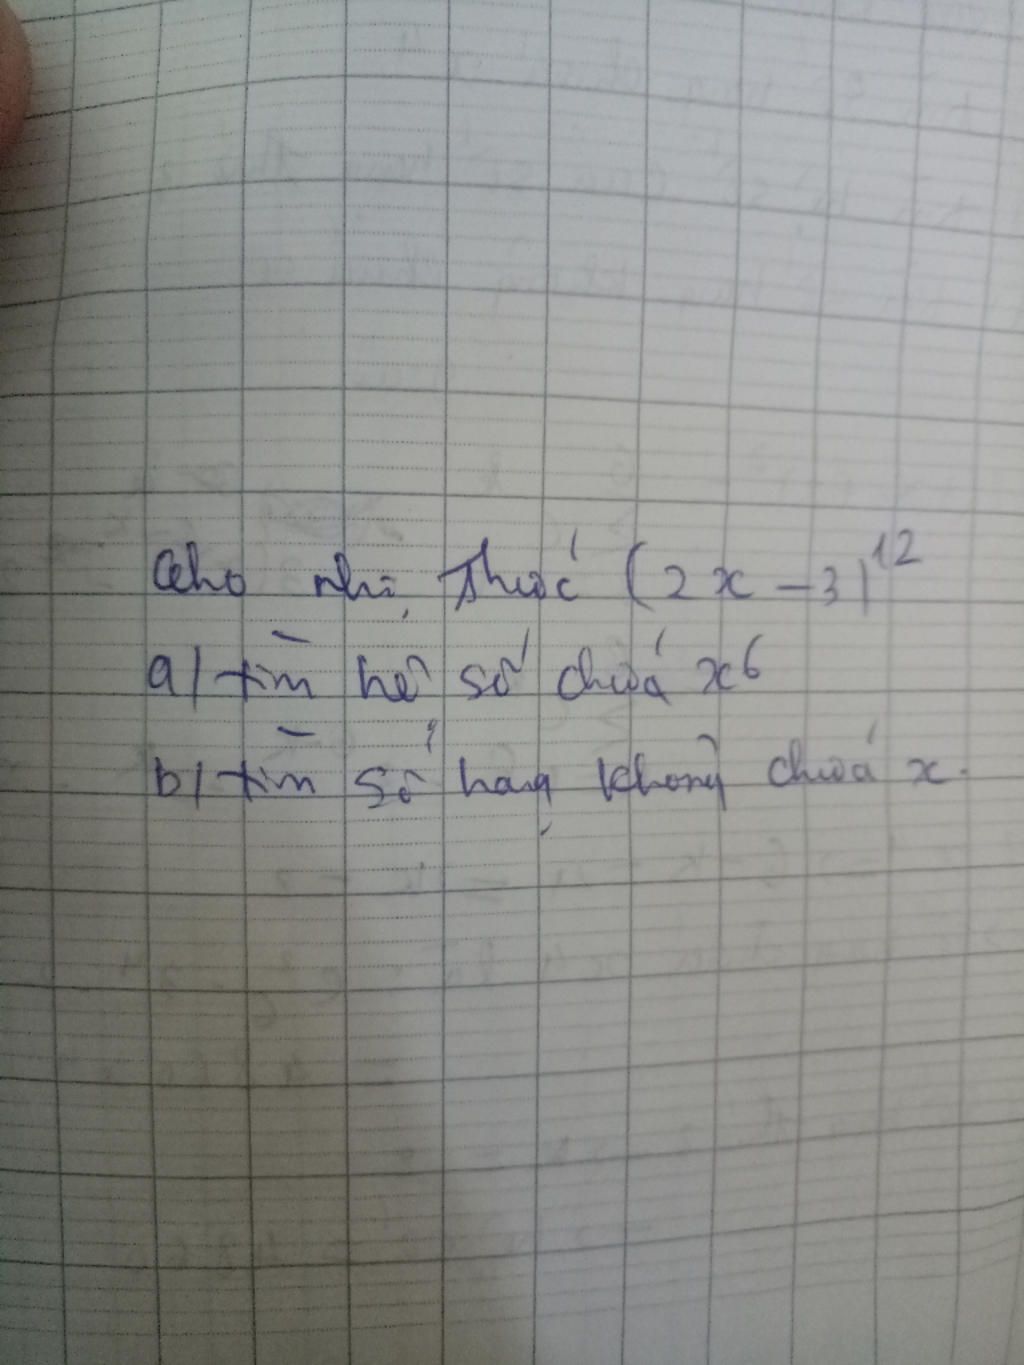 Cho nhị thức (2x - 3)^12
a/ tìm hệ số chứa x^6
b/ tìm số hạng không chứa x.